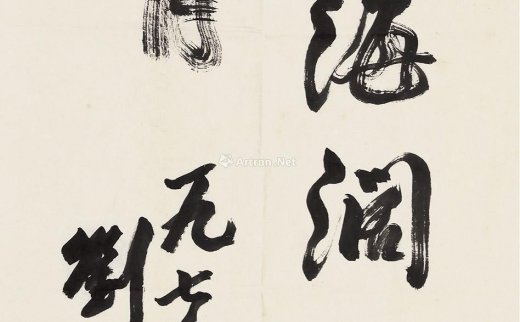 海濶
九七
劉
Artron.Net